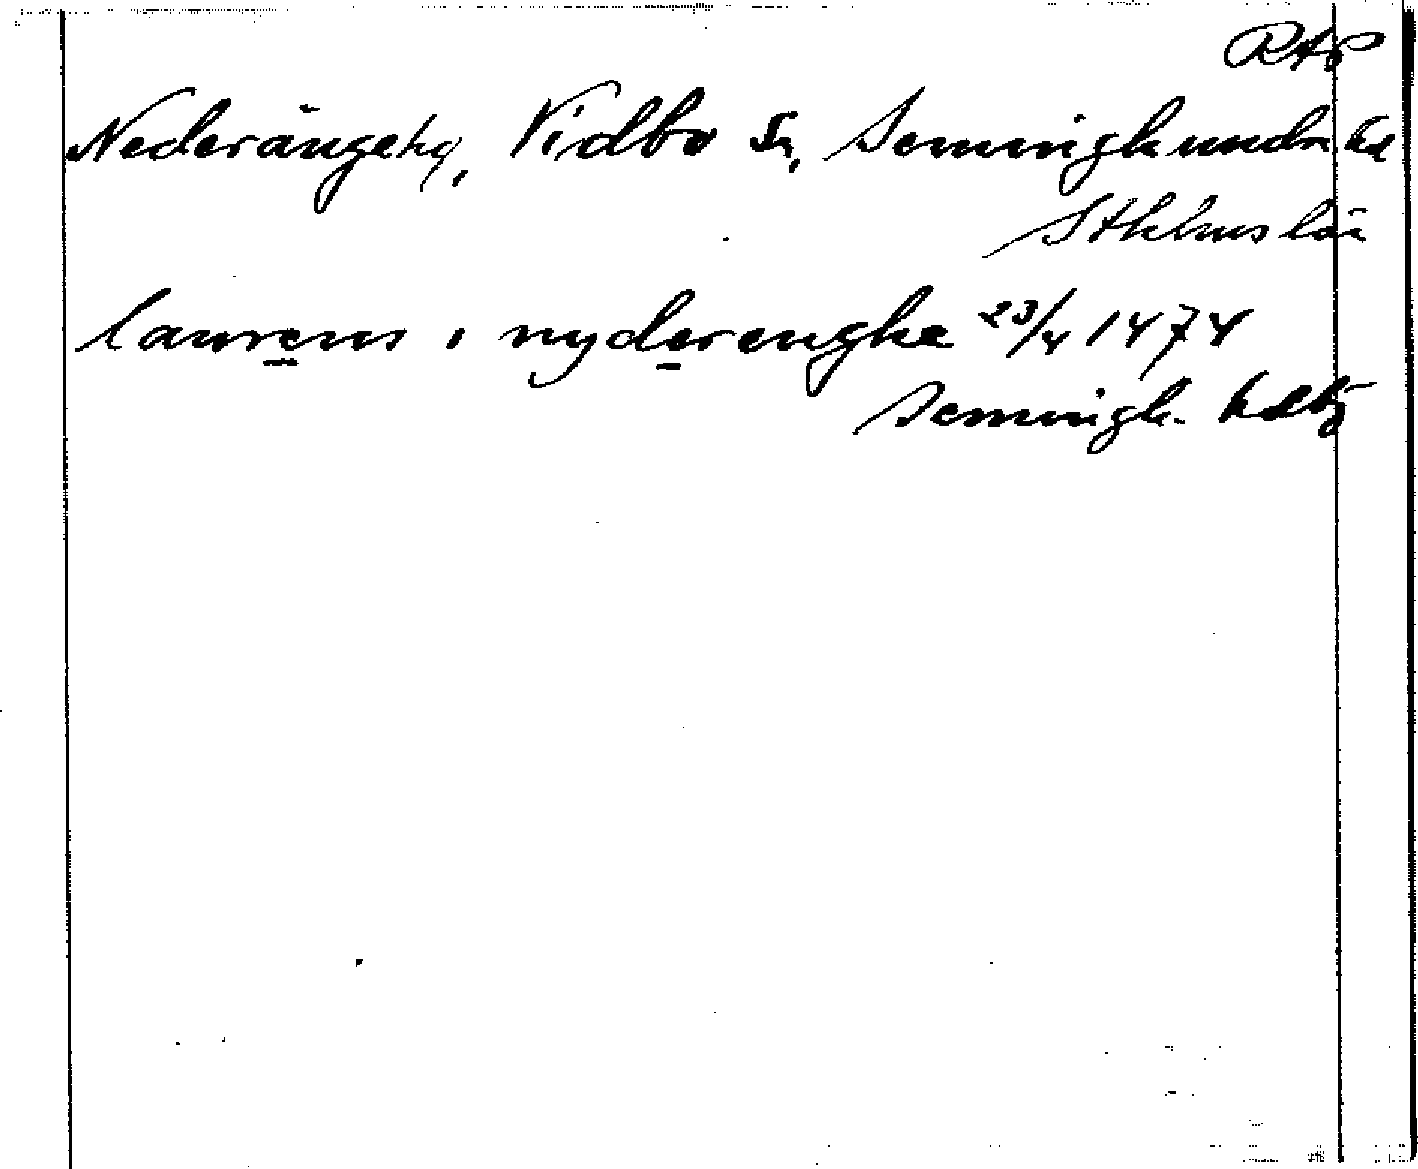 RAP
Nederänge hg, Vidbo sn, Seminghundra hd
Sthlms län
laurens i nyderenghe 23/4 1474
Semingh. hdtg